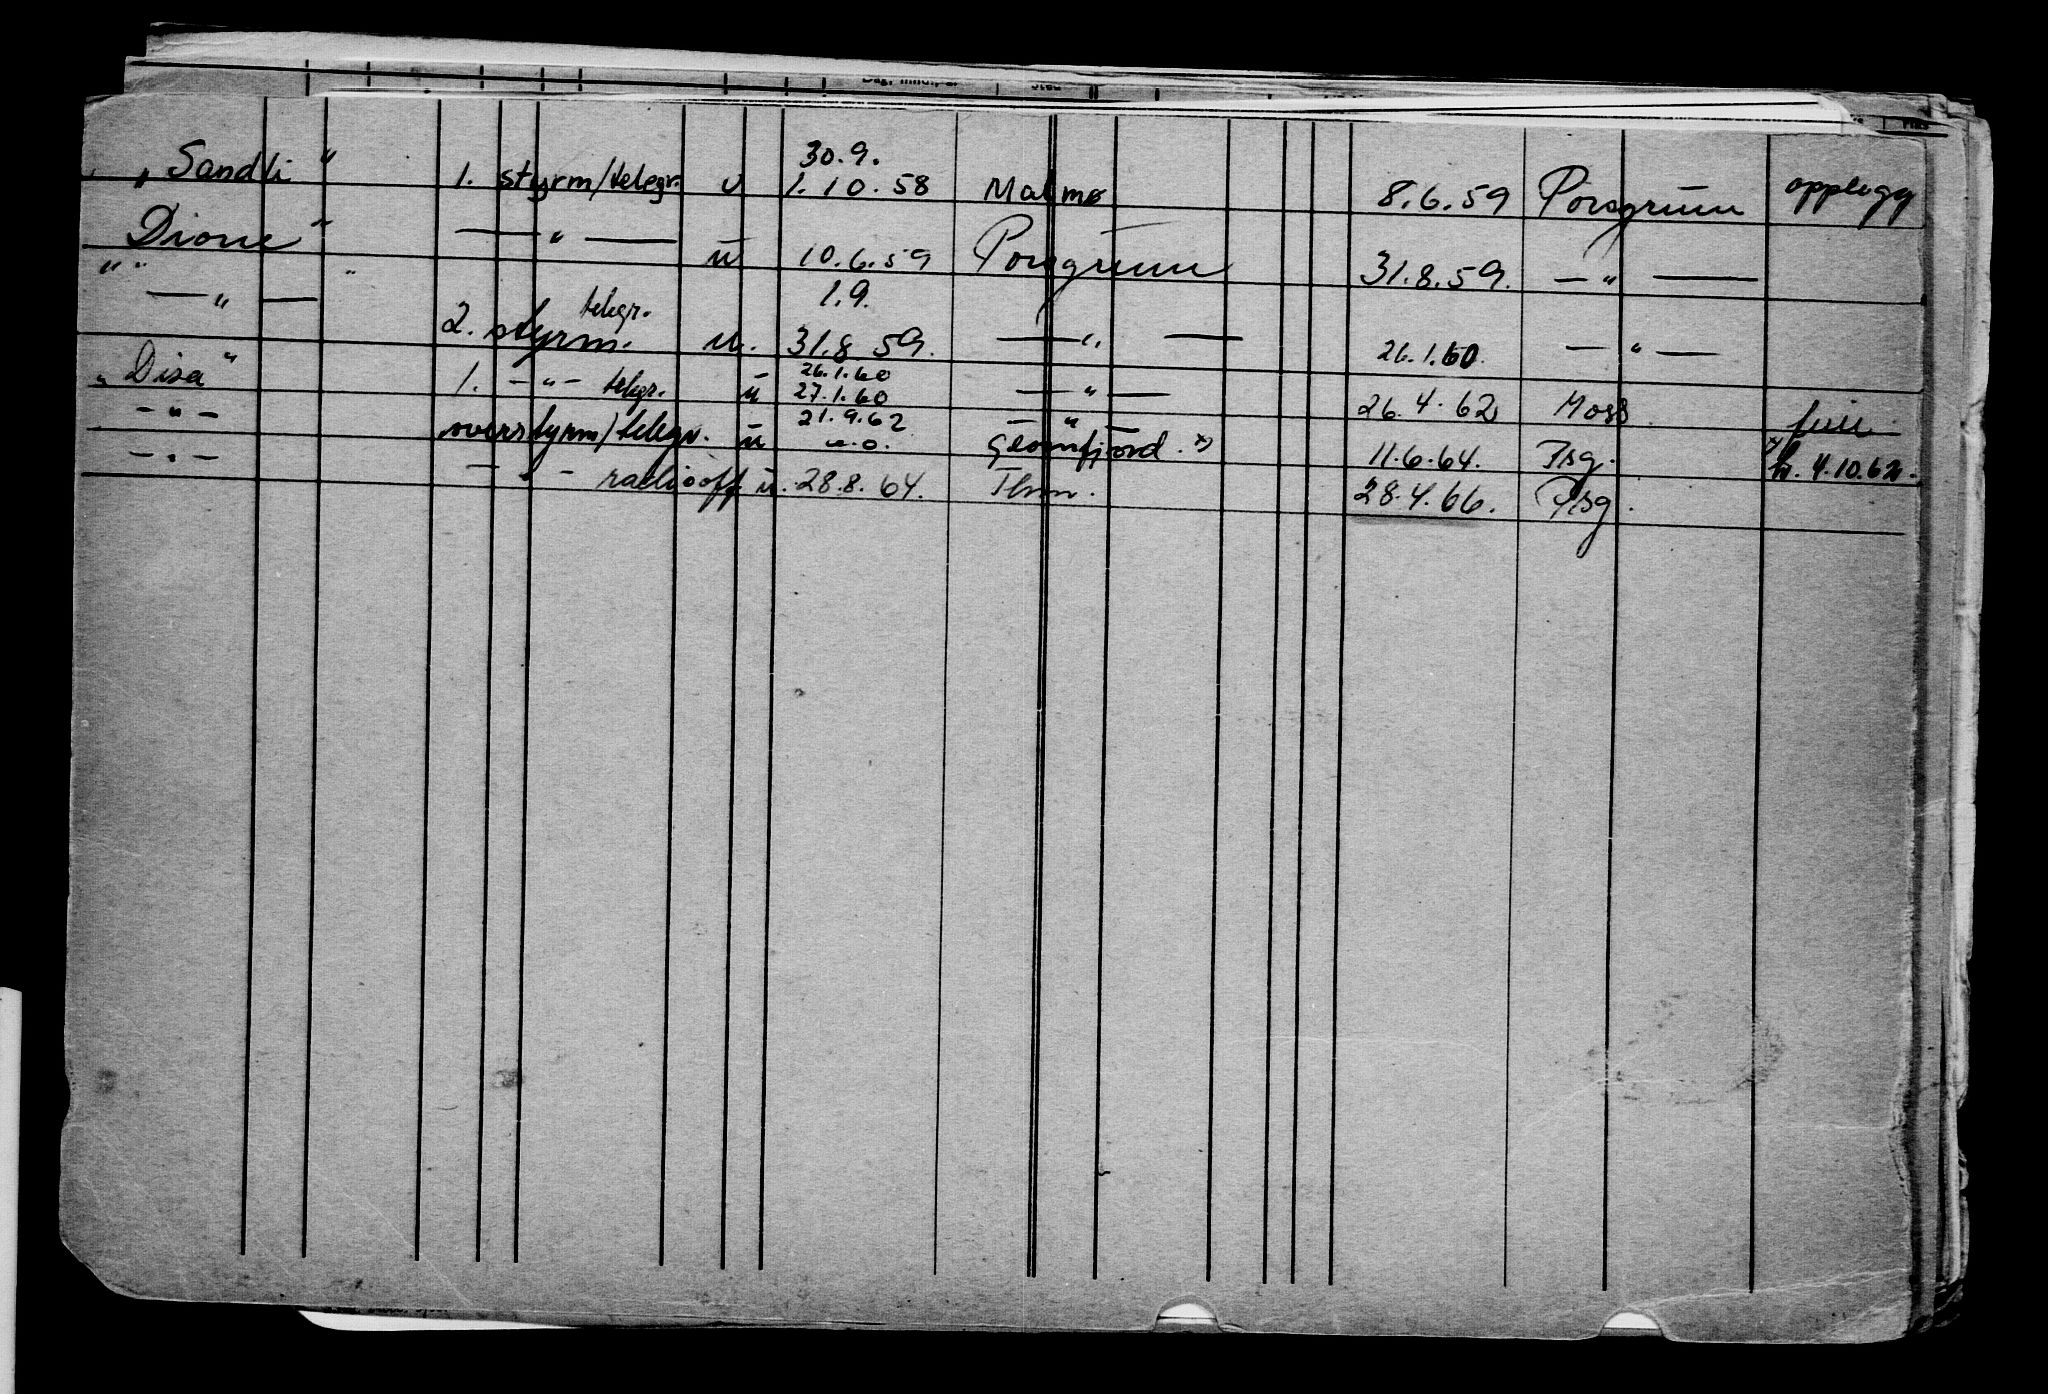 30.9.
„Sandli" 1. styrm/telegr. u 1.10.58 Malmø 8.6.59 Porsgrunn opplegg
„Dione" — " — u 10.6.59 Porsgrunn 31.8.59. — " —
telegr. 1.9.
— " — 2. styrm. u. 31.8.59. — " — 26.1.60. — " —
26.1.60
„Disa" 1. - " - telegr. u 27.1.60 — " — 26.4.62 Moss
21.9.62 — " —
- " - overstyrm/telegr. u Glomfjord. x) 11.6.64. Prsg. x) 4.10.62.
- " - - " - radiooff u. 28.8.64. 28.4.66. Prsg.